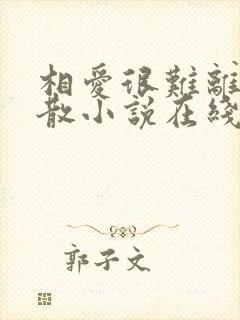 相愛很難離
散小說在綫
郭子文